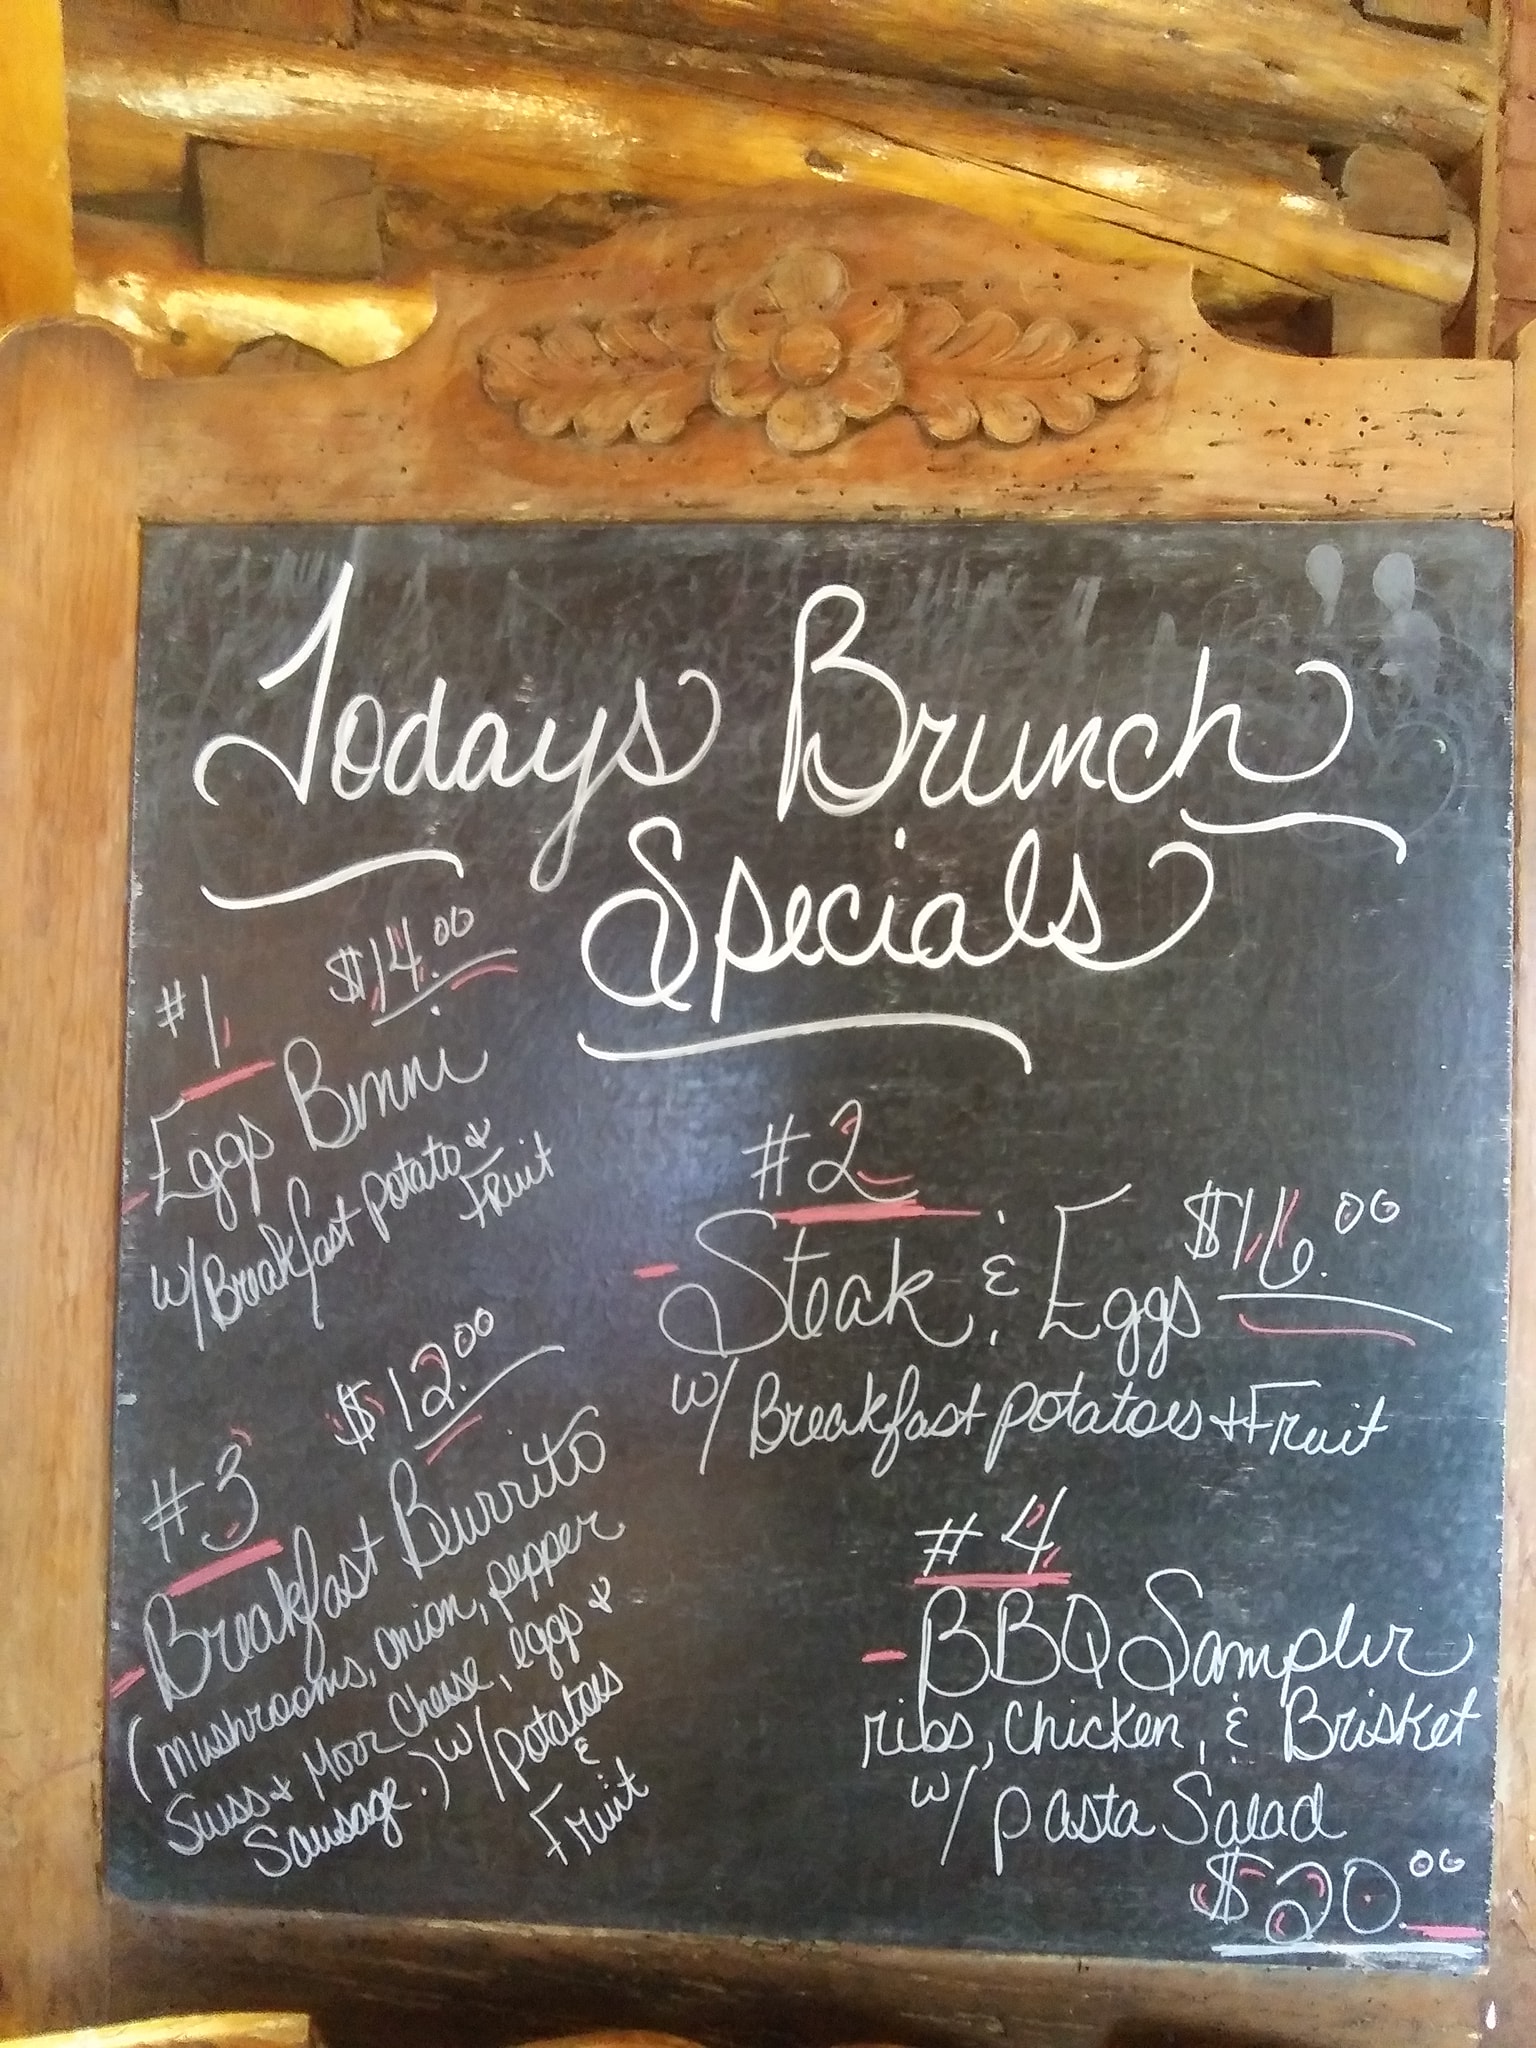 Todays Brunch
Specials
#1 $14.00
Eggs Benni
w/Breakfast potato &
Fruit
#2
Steak & Eggs $16.00
w/ Breakfast potatoes & Fruit
#3 $12.00
Breakfast Burrito
(mushrooms, onion, pepper
Swiss & Mozz Cheese, eggs &
Sausage.) w/potatoes
&
Fruit
#4
BBQ Sampler
ribs, chicken, & Brisket
w/ pasta Salad
$20.00